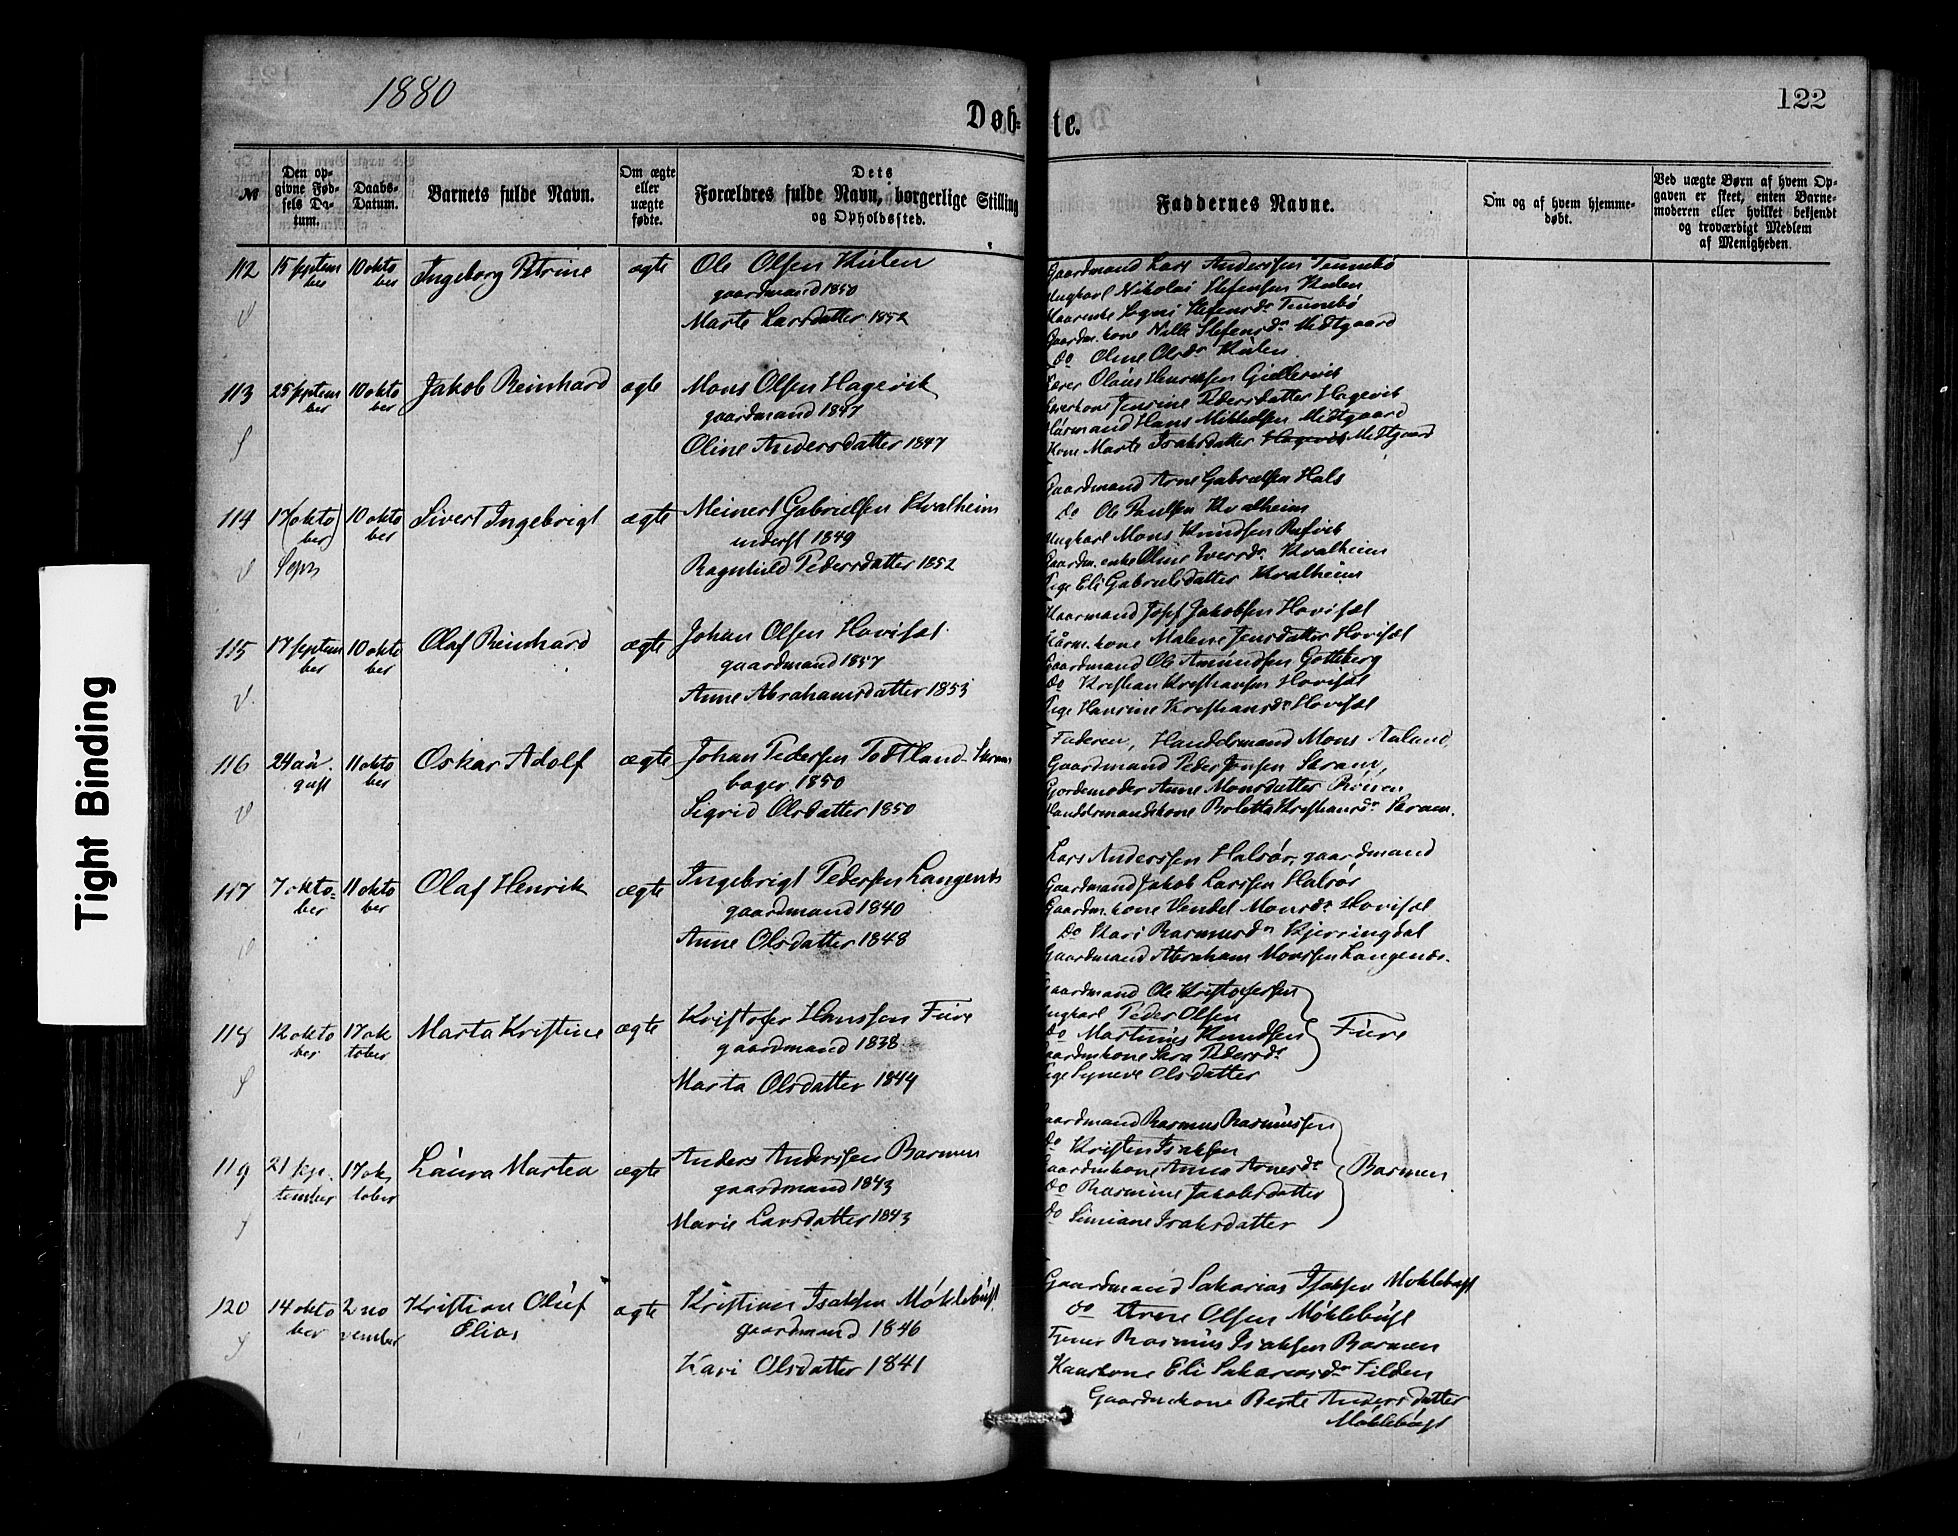 1880
Døb-
te.
122
Tight Binding
№
Den op-
givne Fød-
sels Da-
tum.
Daabs-
Datum.
Barnets fulde Navn.
Om ægte
eller
uægte
fødte.
Dets
Forældres fulde Navn, borgerlige Stilling
og Opholdssted.
Faddernes Navne.
Om og af hvem hjemme-
døbt.
Ved uægte Børn af hvem Op-
gaven er skeet, enten Barne-
moderen eller hvilket bekjendt
og troværdigt Medlem
af Menigheden.
112 15 septem
ber
10 okto
ber
Ingeborg Petrine
ægte
Ole Olsen
gaardmand 1850
Marte Larsdatter 1852
Gaardmand Lars Anderssen Tennebø
Nikolai Stefensen
Stefensdr Tennebø
Stefensdr Midtgaard
do Oline Olsdr
113 25 septem
ber
10 okto
ber
Jakob Reinhard
ægte
Mons Olsen Hagevik
gaardmand 1847
Oline Andersdatter 1847
Olaus
Jensine Pedersdatter Hagevik
Hans Mikkelsen Midtgaard
Kone Marte Isaksdatter Hagevik Midtgaard
114 17 (okto
ber)
Sept
10 okto
ber
Sivert Ingebrigt
ægte
Meinert Gabrielsen Kvalheim
inderst 1849
Ragnhild Pedersdatter 1852
Gaardmand Arne Gabrielsen Hals
do Ole Paulsen Kvalheim
Ungkarl Mons Knudsen
Gaardm. enke Oline Iversdr Kvalheim
Pige Eli Gabrielsdatter Kvalheim
115 17 septem
ber
10 okto
ber
Olaf Reinhard
ægte
Johan Olsen Hovisæt
gaardmand 1857
Anne Abrahamsdatter 1853
Kaarmand Josef Jakobsen Hovisæt
Kårm.kone Malene Jensdatter Hovisæt
Gaardmand Ole Amundsen Gotteberg
do Kristian Kristiansen Hovisæt
Pige Hansine Kristiansdr Hovisæt
116 24 au-
gust
11 okto
ber
Oskar Adolf
ægte
Johan Pedersen Totland-Skram
bager 1850
Sigrid Olsdatter 1850
Faderen, Handelsmand Mons Aaland,
Gaardmand Peder Jonsen Skram,
Gjordemoder Anne Monsdatter
Handelsmandskone Boletta Kristiansdr Skram.
117 7 okto-
ber
11 okto
ber
Olaf Henrik
ægte
Ingebrigt Pedersen Langenes
gaardmand 1840
Anne Olsdatter 1848
Lars Anderssen Halsør, gaardmand
Gaardmand Jakob Larssen Halsør
Gaardm.kone Vendel Monsdr Hovisæt
do Kari Rasmusdr Kjerringdal
Gaardmand Abraham Monssen Langenæs.
118 12 okto
ber
17 ok
tober
Marta Kristine
ægte
Kristofer Hanssen Fure
gaardmand 1838
Marta Olsdatter 1844
Gaardmand Ole Kristofersen
Ungkarl Peder Olsen
do Martinus Knudsen
Gaardmkone Sara Pedersdr
Pige Synneve Olsdatter
Fure
119 21 sep-
tember
17 ok
tober
Laura Martea
ægte
Anders Anderssen Barmen
gaardmand 1843
Marie Larsdatter 1843
Gaardmand Rasmus Rasmussen
do Kristen Isaksen
Gaardmkone Anna Arnesdr
do Rasmine Jakobsdatter
do Simiane Isaksdatter
Barmen
120 14 okto
ber
2 no
vember
Kristian Oluf
Elias
ægte
Kristian Isaksen Møklebust
gaardmand 1846
Kari Olsdatter 1841
Gaardmand Sakarias Isaksen Moklebust
do Arne Olsen Møklebust
Rasmus Isaksen Barmen
Kaarkone Eli Sakariasdr Silden
Gaardmkone Berte Andersdatter
Møklebust